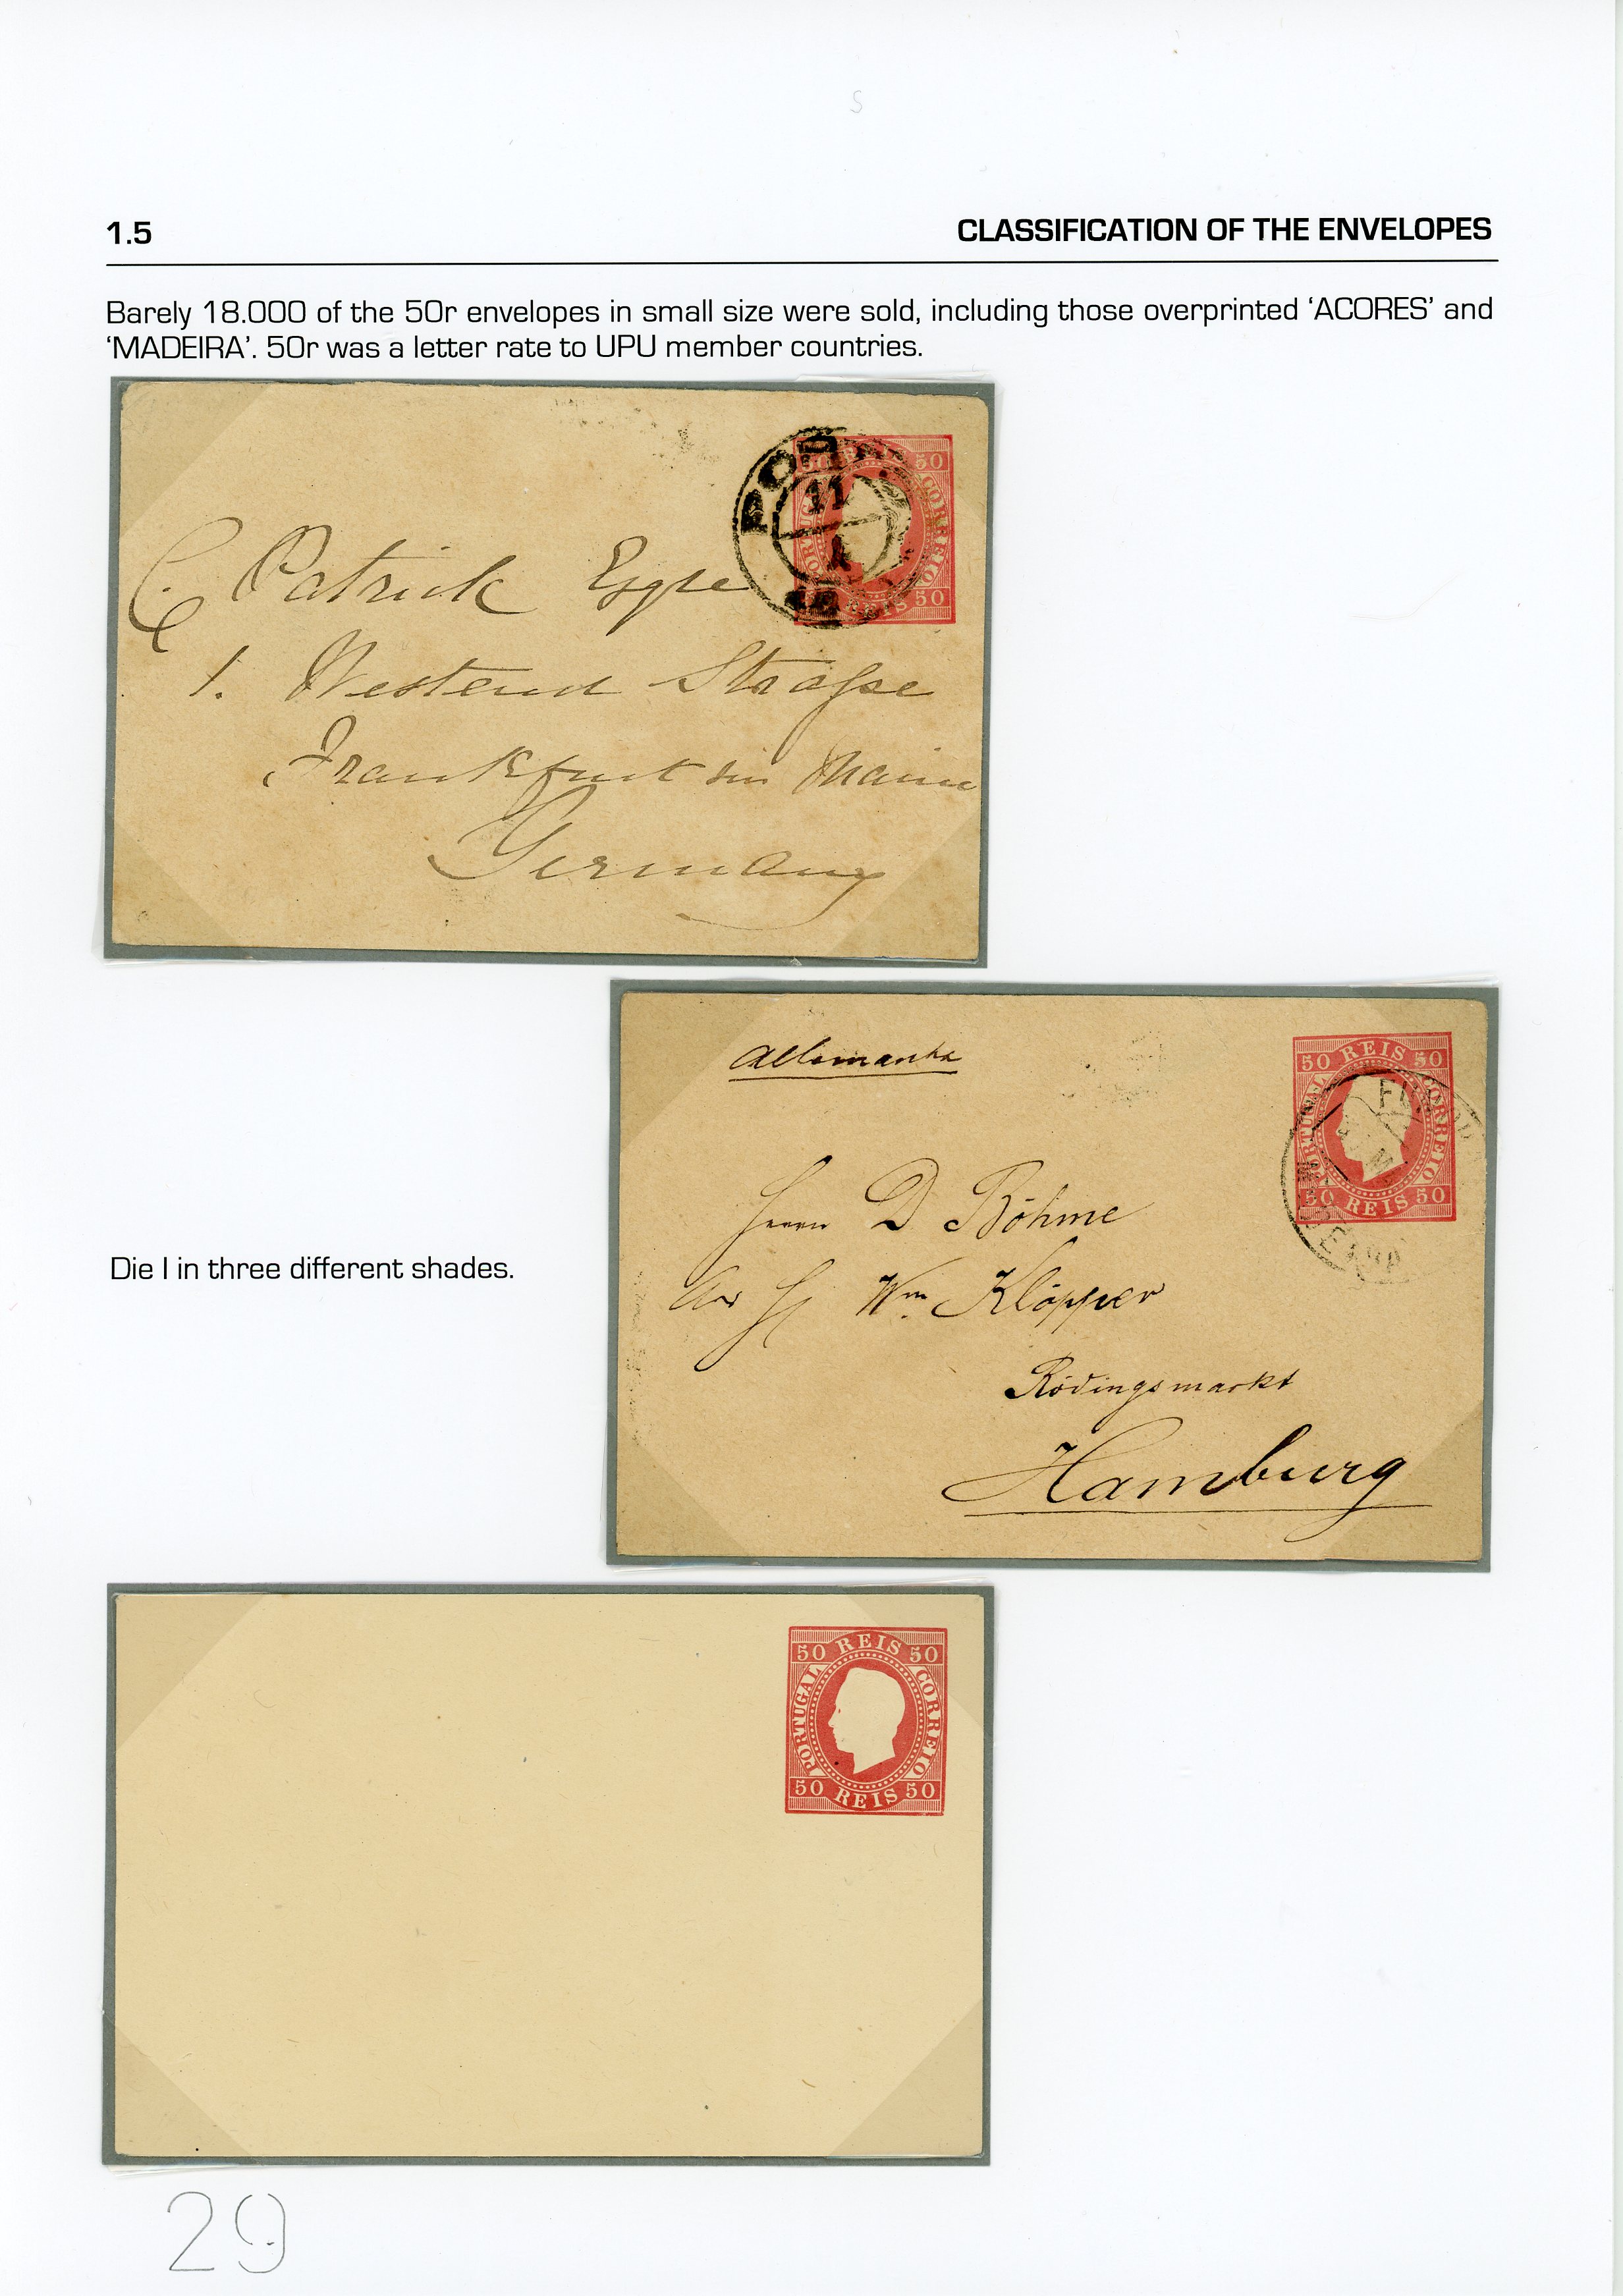 S
1.5 CLASSIFICATION OF THE ENVELOPES
Barely 18.000 of the 50r envelopes in small size were sold, including those overprinted ‘ACORES’ and
‘MADEIRA’. 50r was a letter rate to UPU member countries.
50 50
PORTUGAL CORREIO
REIS 50
11
C. Patrick Esqre
1. Westend Straße
Frankfurt Main
Germany
Allemanha
50 REIS 50
PORTUGAL CORREIO
50 REIS 50
Herrn D Böhme
Wm. Klöpper
Rödingsmarkt
Hamburg
Die I in three different shades.
50 REIS 50
PORTUGAL CORREIO
50 REIS 50
29